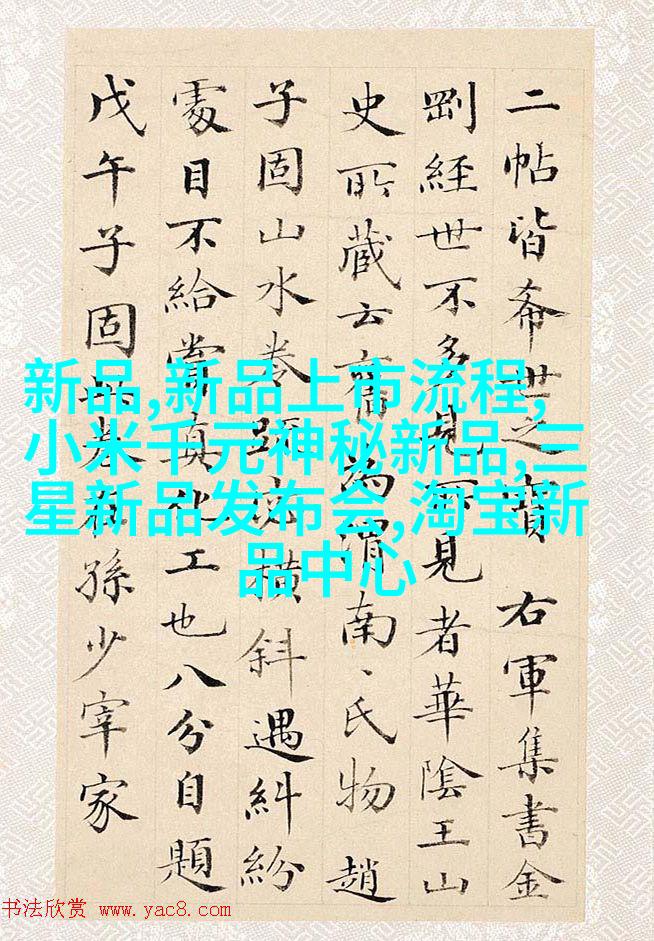 二帖皆希世之寶 右軍集書金
剛經世不多見所見者華陰王山
史所藏云舊為渭南、氏物 趙
子固山水卷疏密橫斜遇糾紛
處目不給賞真化工也八分自題
戊午子固此卷在孫少宰家
新品,新品上市流程,
小米千元神秘新品,三
星新品发布会,淘宝新
品中心
书法欣赏 www.yac8.com